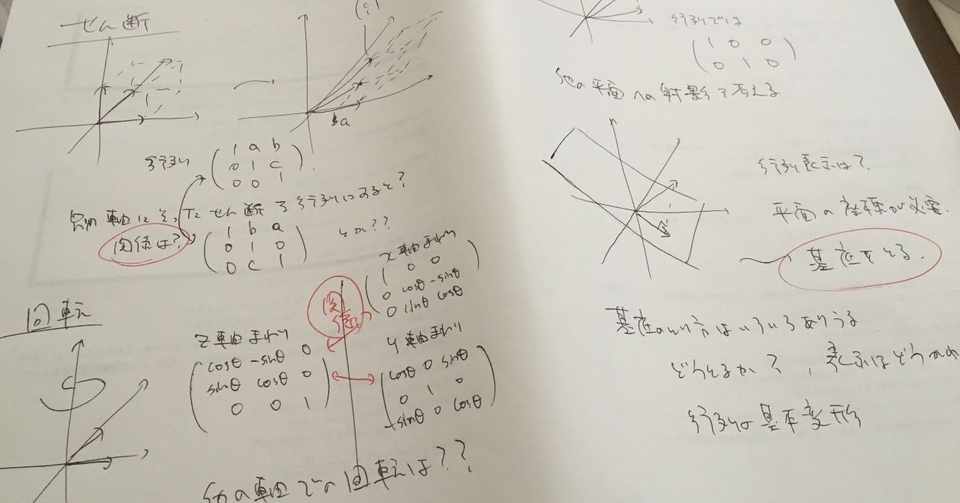 せん断
a
行列
( 1 a b
0 1 c
0 0 1 )
別の軸にそった せん断を行列にすると?
関係は?
( 1 b a
0 1 0
0 c 1 )
とか??
回転
z軸まわり
( cosθ -sinθ 0
sinθ cosθ 0
0 0 1 )
x軸まわり
( 1 0 0
0 cosθ -sinθ
0 sinθ cosθ )
y軸まわり
( cosθ 0 sinθ
0 1 0
-sinθ 0 cosθ )
他の軸での回転は??
行列では
( 1 0 0
0 1 0 )
他の平面への射影を考える
行列表示は?
平面の座標が必要
基底をとる
基底のとり方はいろいろありうる
どうとるか?, 表示はどうかわ
行列の基本変形